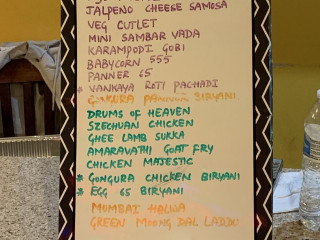 JALPENO CHEESE SAMOSA
VEG CUTLET
MINI SAMBAR VADA
KARAMPODI GOBI
BABYCORN 555
PANNER 65
* VANKAYA ROTI PACHADI
GONGURA PANNEER BIRYANI
DRUMS OF HEAVEN
SZECHUAN CHICKEN
GHEE LAMB SUKKA
AMARAVATHI GOAT FRY
CHICKEN MAJESTIC
* GONGURA CHICKEN BIRYANI
* EGG 65 BIRYANI
MOMBAI HALWA
GREEN MOONG DAL LADDU